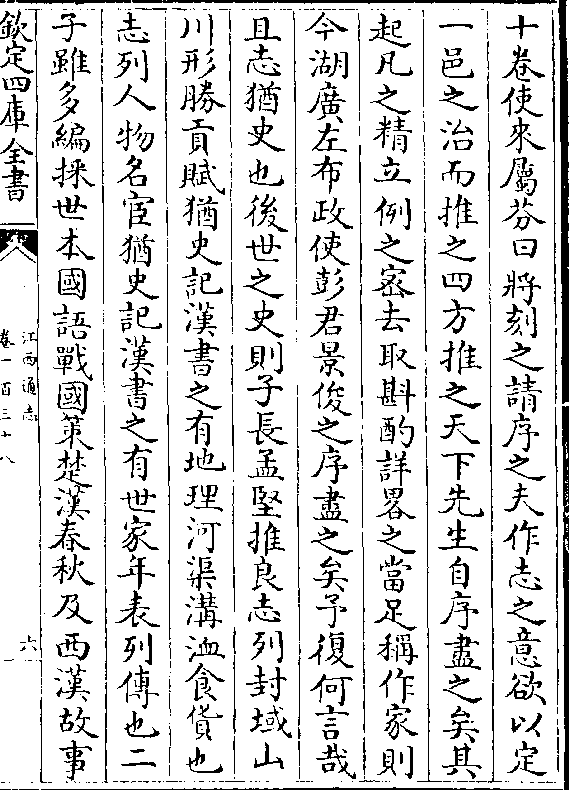 十卷使來屬芬曰將刻之請序之夫作志之意欲以定
一邑之治而推之四方推之天下先生自序盡之矣其
起凡之精立例之宻去取斟酌詳畧之當足稱作家則
今湖廣左布政使彭君景俊之序盡之矣予復何言哉
且志猶史也後世之史則子長孟堅推良志列封域山
川形勝貢賦猶史記漢書之有地理河渠溝洫食貨也
志列人物名宦猶史記漢書之有世家年表列傳也二
子雖多編採世本國語戰國策楚漢春秋及西漢故事
欽定四庫全書
江西通志
卷一百三十八
六